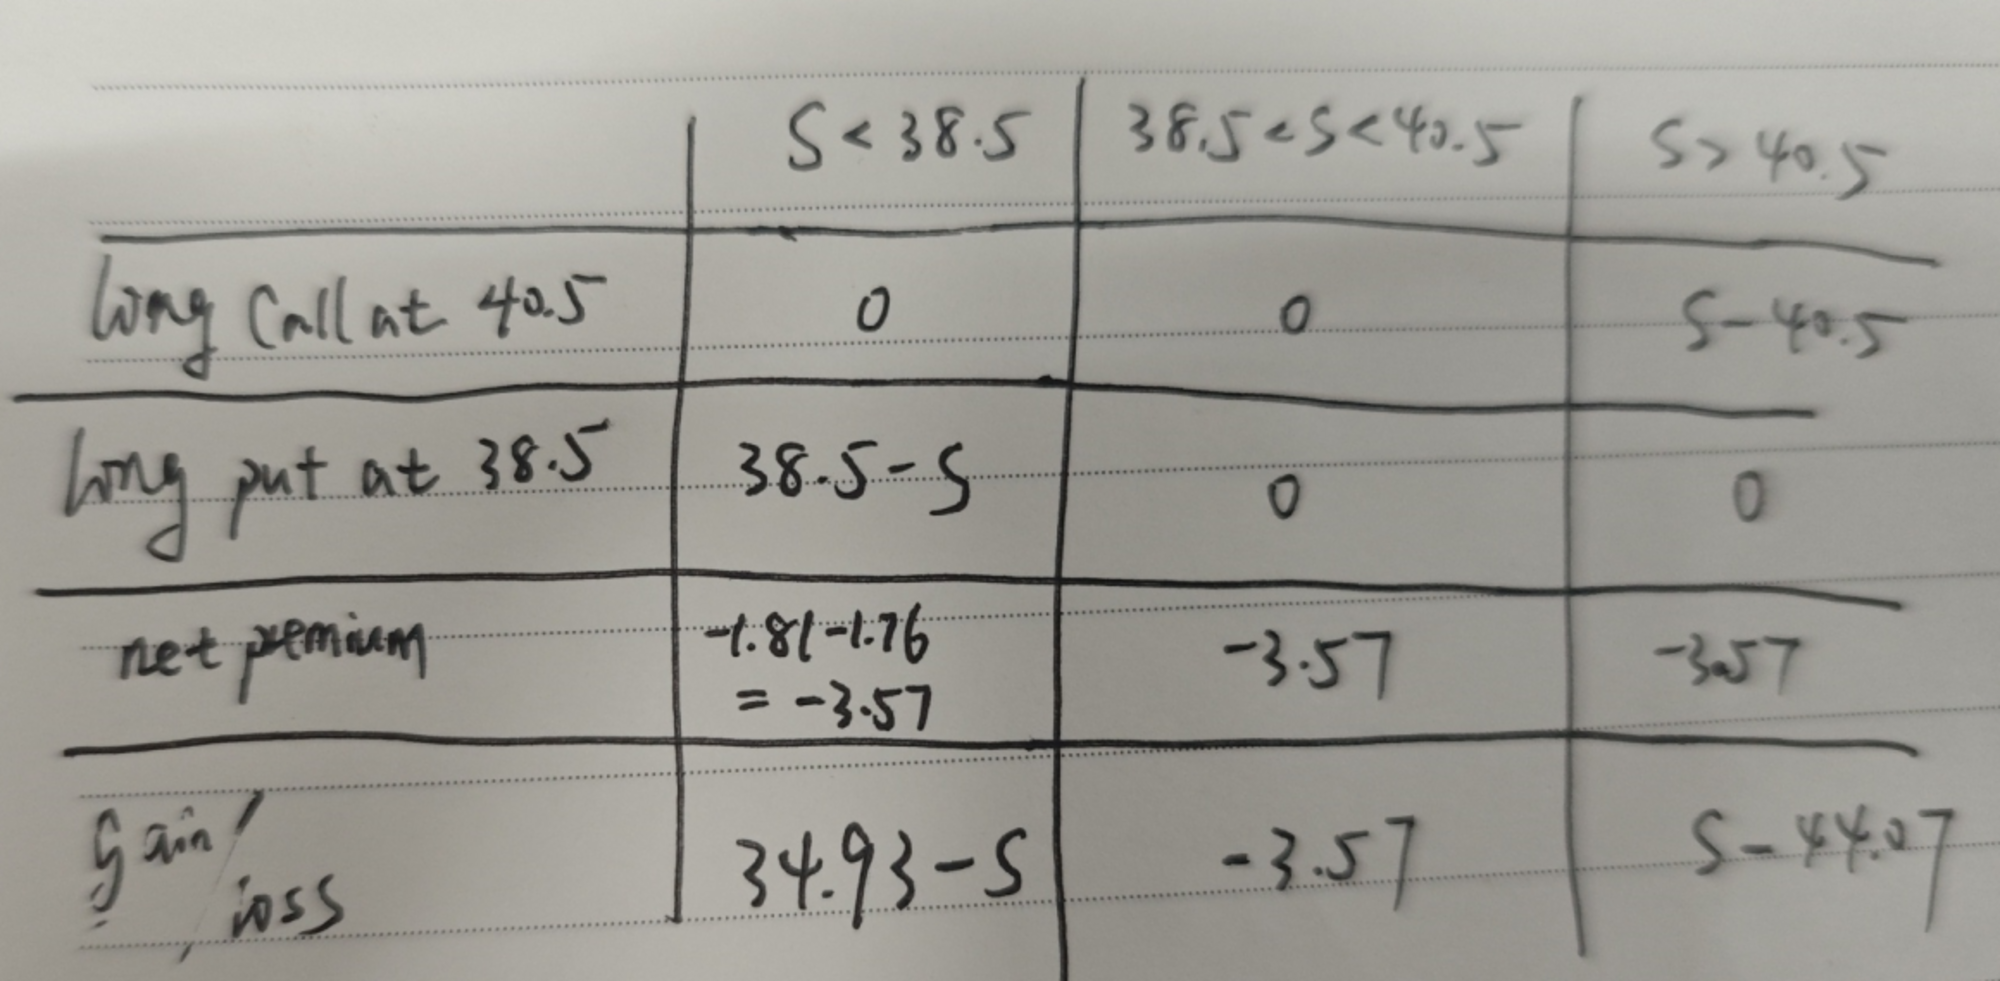 S < 38.5 38.5 < S < 40.5 S > 40.5
long Call at 40.5 0 0 S - 40.5
long put at 38.5 38.5 - S 0 0
net premium -1.81 - 1.76 -3.57 -3.57
= -3.57
Gain/ 34.93 - S -3.57 S - 44.07
loss